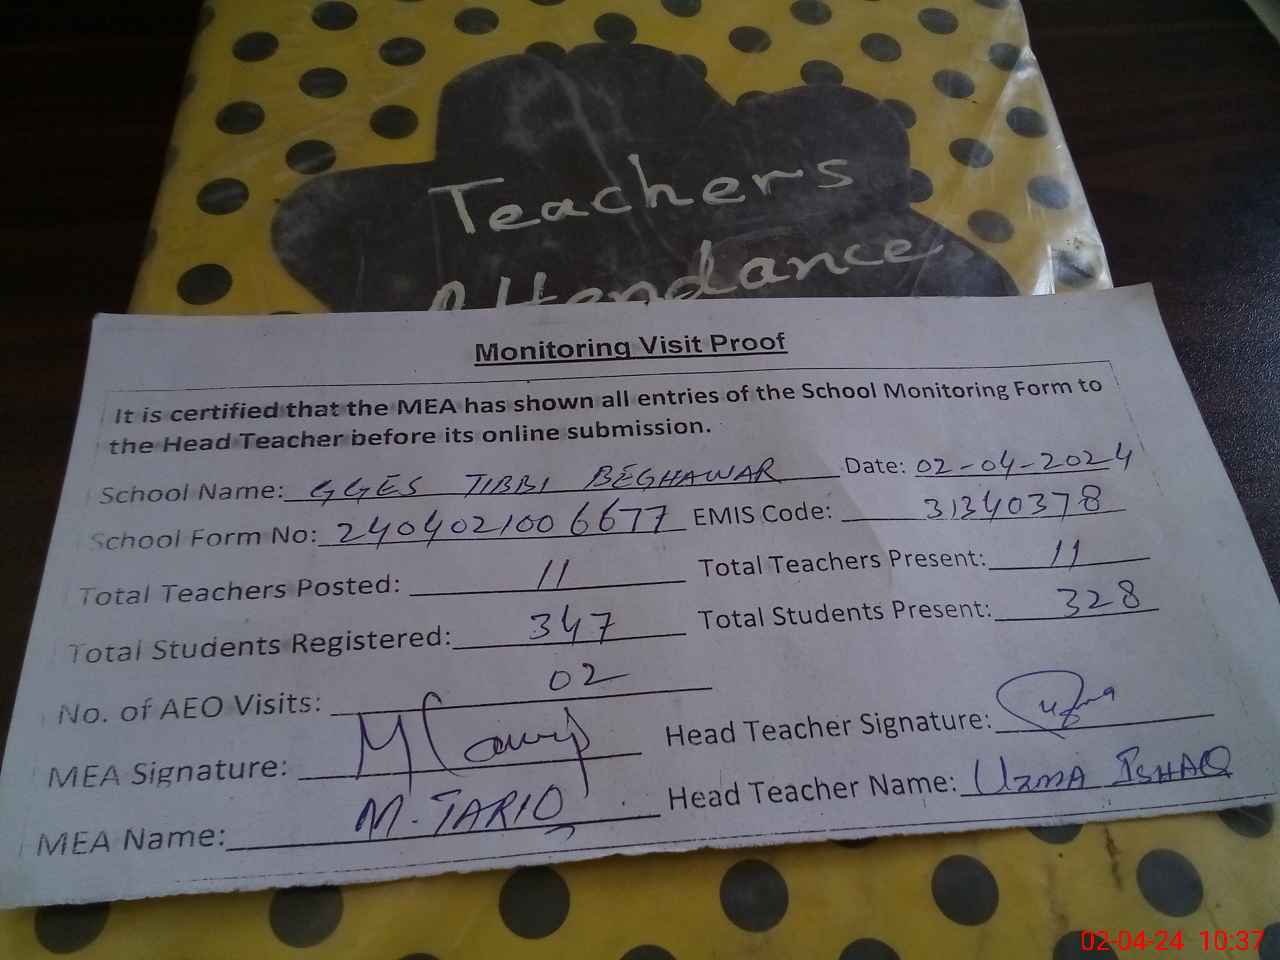 Teachers
Attendance
Monitoring Visit Proof
It is certified that the MEA has shown all entries of the School Monitoring Form to
the Head Teacher before its online submission.
School Name: GGES TIBBI BEGHAWAR Date: 02-04-2024
School Form No: 2404021006677 EMIS Code: 31340378
Total Teachers Posted: 11 Total Teachers Present: 11
Total Students Registered: 347 Total Students Present: 328
No. of AEO Visits: 02
MEA Signature: Head Teacher Signature:
MEA Name: M. TARIQ Head Teacher Name: UZMA ISHAQ
02-04-24 10:37